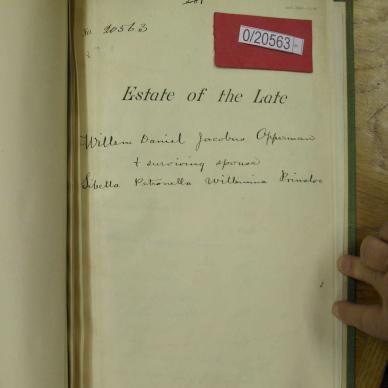 No. 20563
0/20563
Estate of the Late
Willem Daniel Jacobus Opperman
+ surviving spouse
Sibella Petronella Willemina Prinsloo